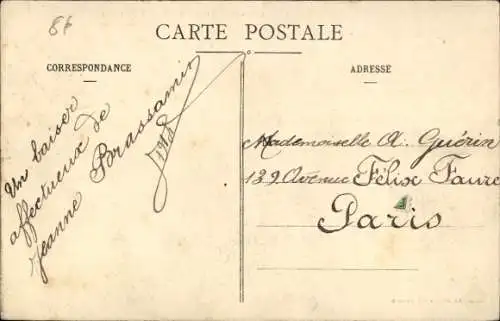 86
CARTE POSTALE
CORRESPONDANCE
ADRESSE
Un baiser
affectueux de
Jeanne Brassamin
Mademoiselle A. Guérin
139 Avenue Félix Faure
Paris